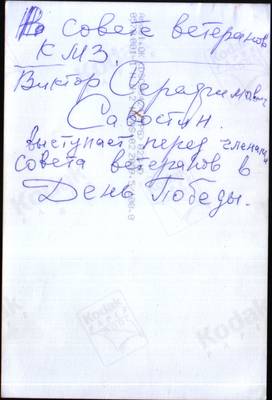 В совете ветеранов
КМЗ.
Виктор Серафимович
Савостин.
выступает перед членами
совета ветеранов в
День Победы.
Kodak
Kodak
Kodak